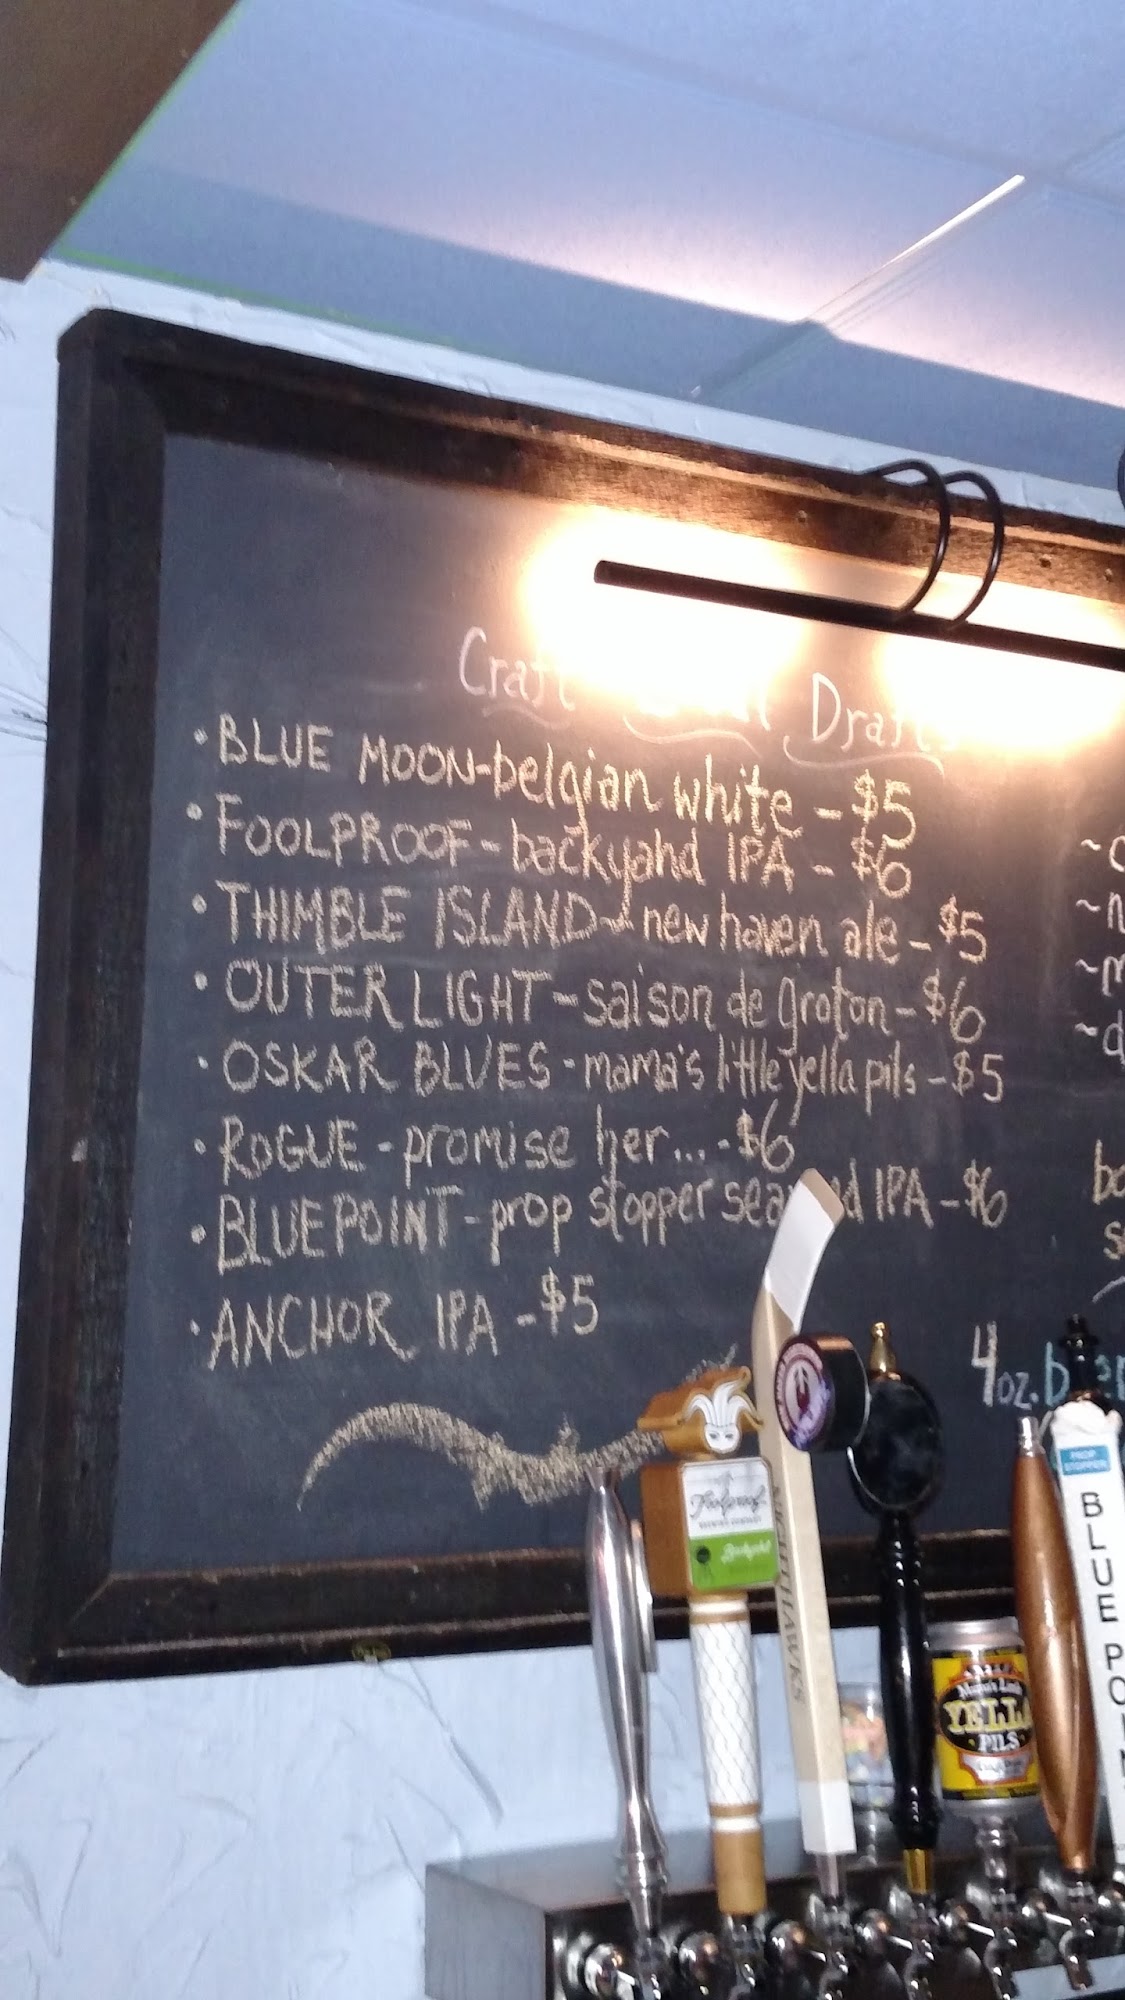 Craft Drafts
• BLUE MOON-belgian white - $5
• FOOLPROOF - backyahd IPA - $6
• THIMBLE ISLAND - new haven ale - $5
• OUTER LIGHT - saison de groton - $6
• OSKAR BLUES - mama's little yella pils - $5
• ROGUE - promise her... - $6
• BLUEPOINT - prop stopper IPA - $6
• ANCHOR IPA - $5
4oz.
Foolproof
BREWING COMPANY
Backyahd
NIGHTHAWKS
YELLA
PILS
PROP
STOPPER
BLUE POINT